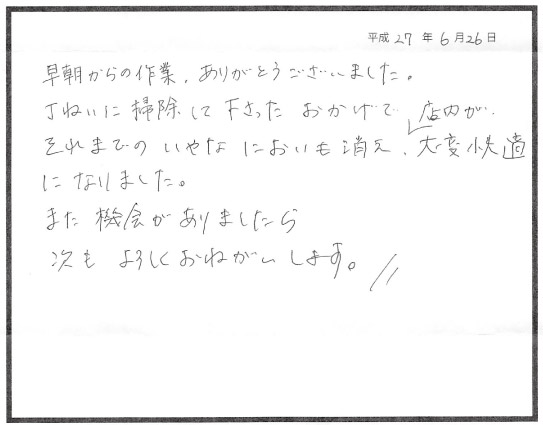 平成27年6月26日
早朝からの作業、ありがとうございました。
丁ねいに掃除して下さったおかげで
それまでのいやなにおいも消え、店内が大変快適
になりました。
また機会がありましたら
次もよろしくおねがいします。